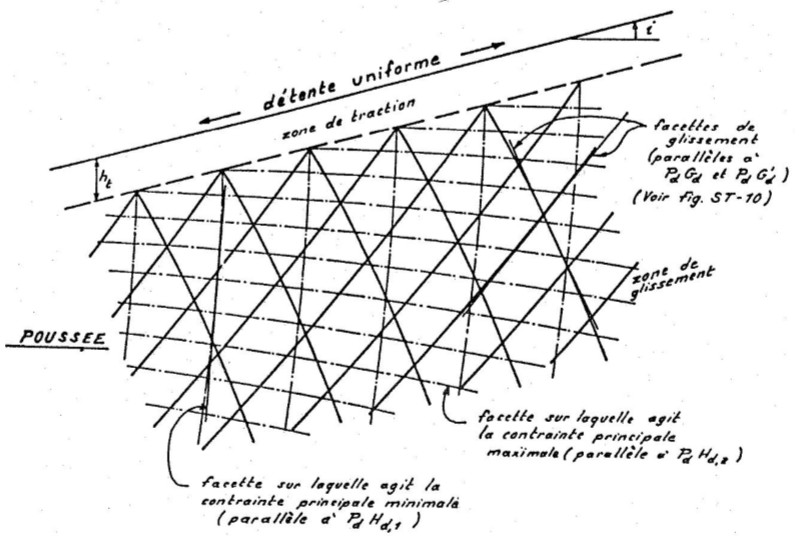 i
détente uniforme
zone de traction
h_t
facettes de
glissement
(parallèles à
P_d G_d et P_d G'_d)
(Voir fig. ST-10)
zone de
glissement
POUSSEE
facette sur laquelle agit
la contrainte principale
maximale (parallèle à P_d H_d,2)
facette sur laquelle agit la
contrainte principale minimale
(parallèle à P_d H_d,1)